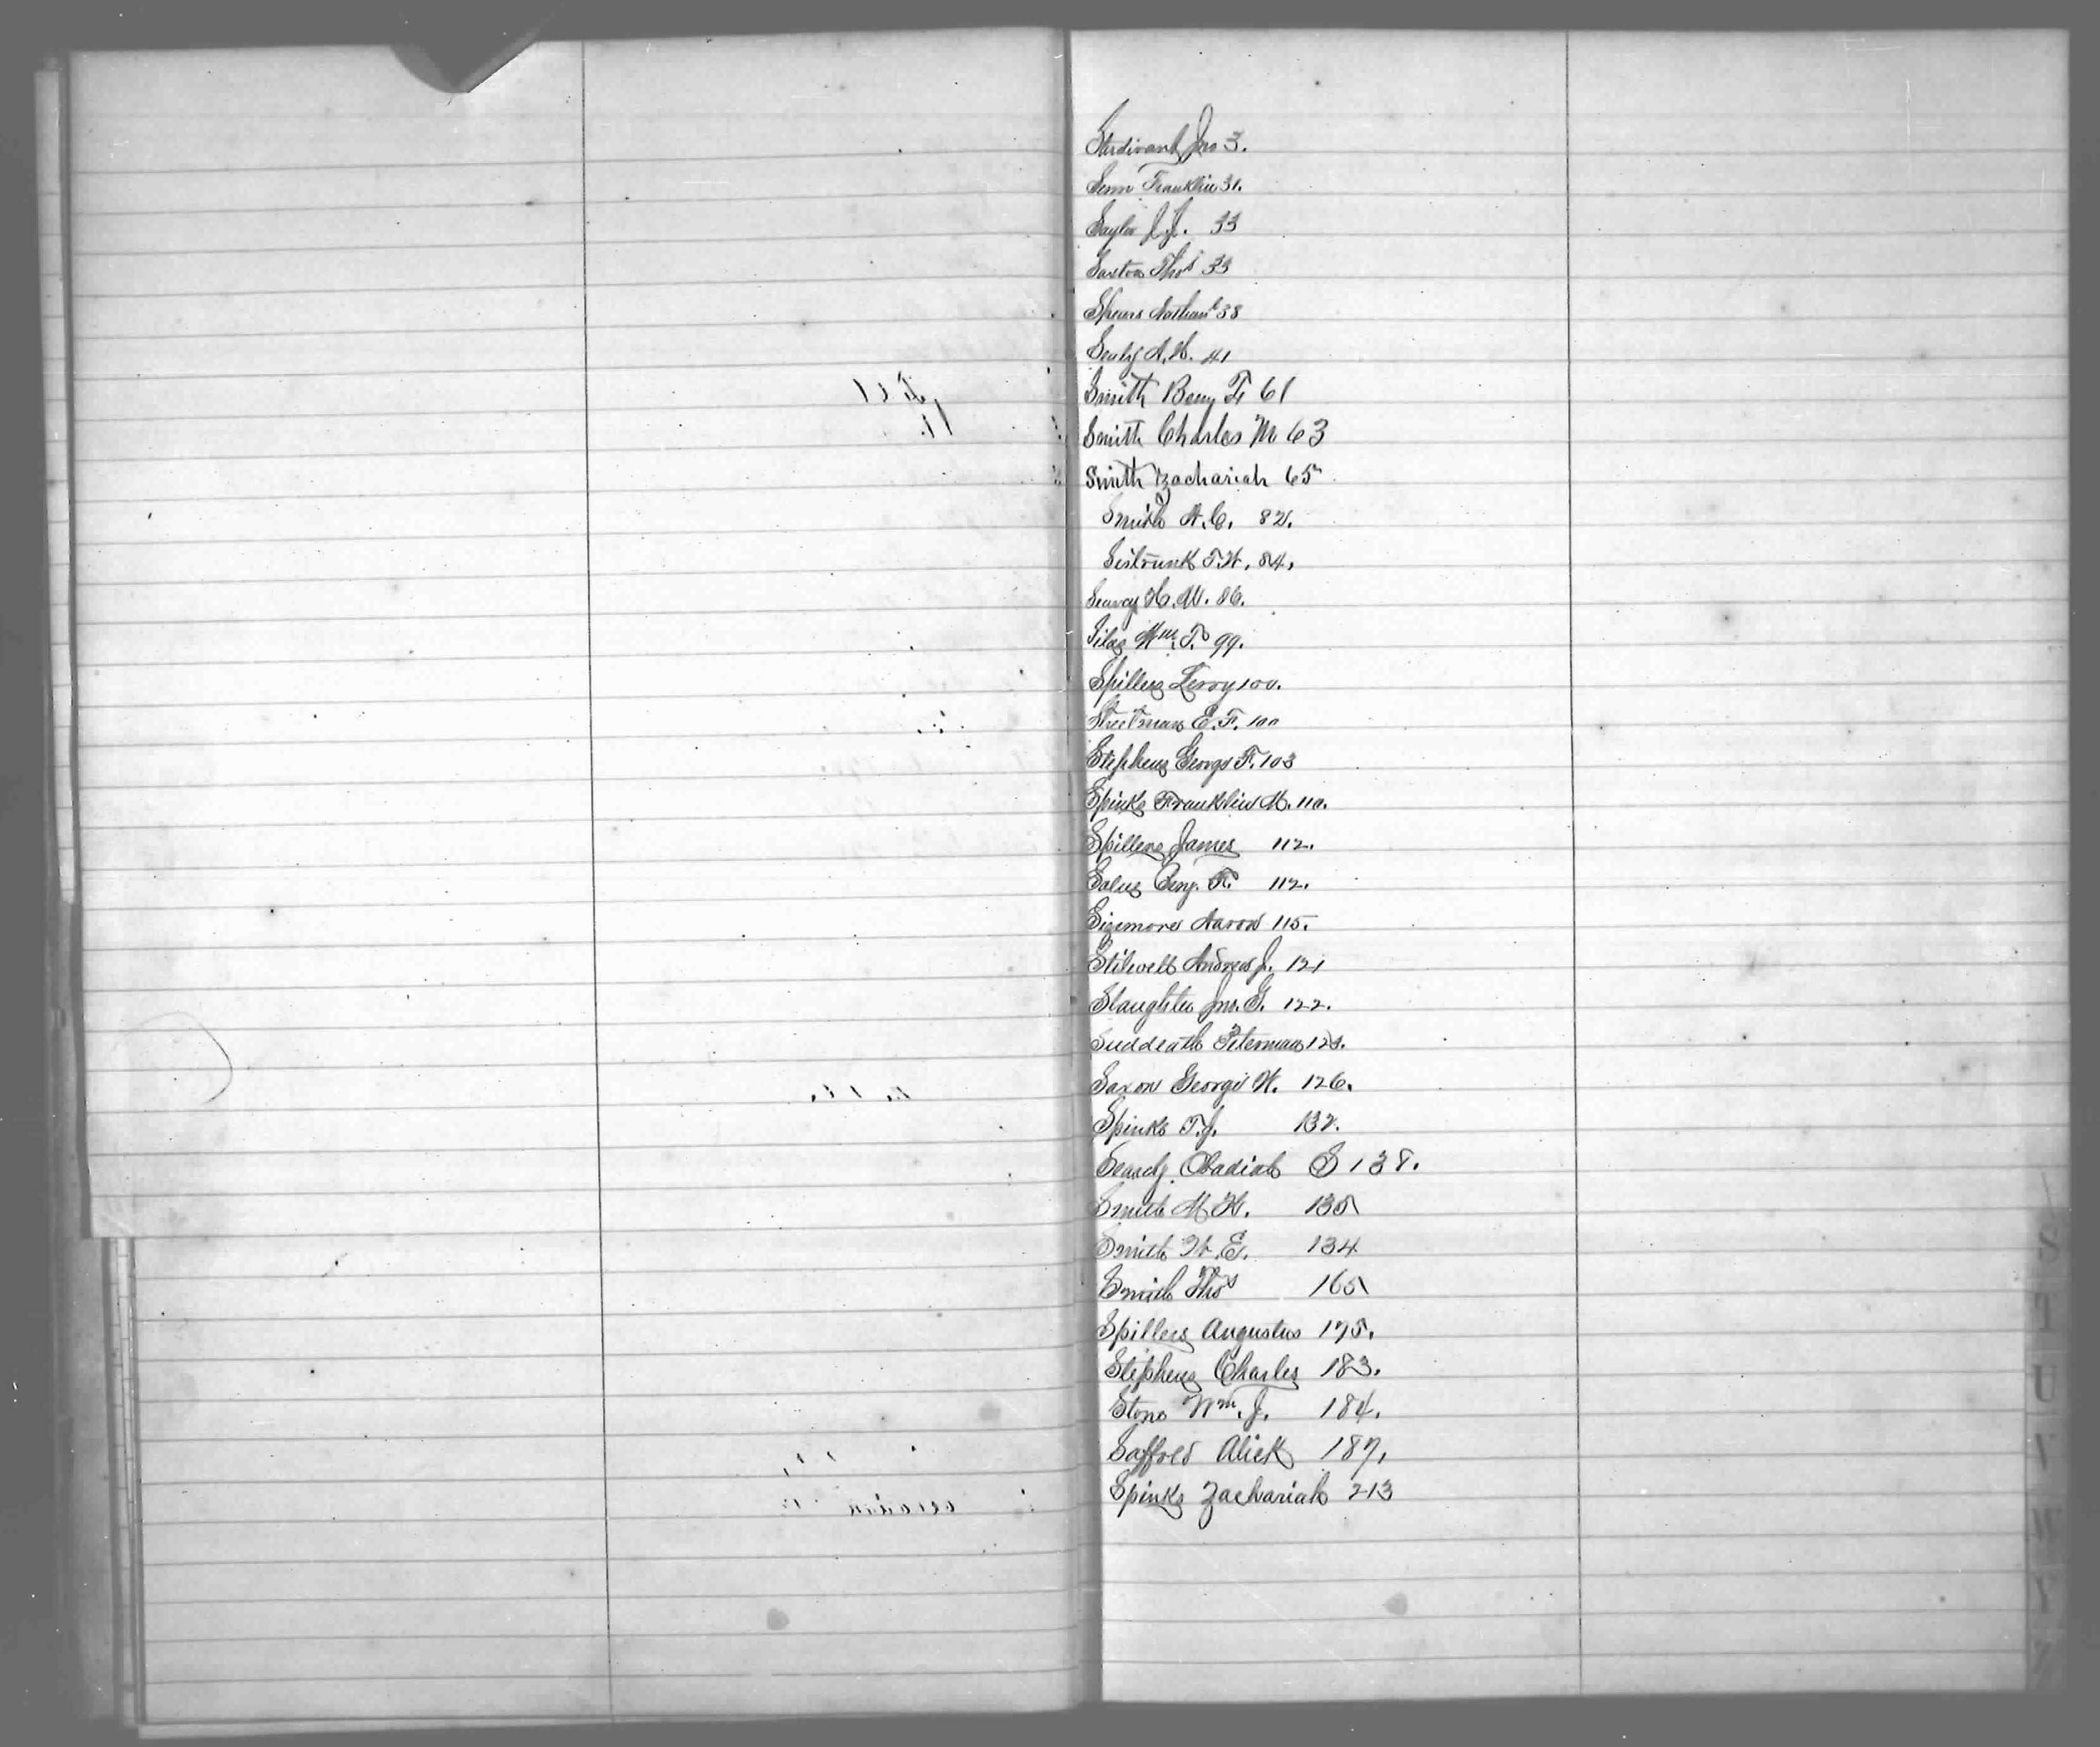 Sturdivant Jno 3.
Senn Franklin 31.
Saylor J.J. 33
Saxton Thos 33
Spears Nathanl 38
Sealy A. H. 41
Smith Benj F 61
Smith Charles M 63
Smith Zachariah 65
Smith A. C. 82.
Sistrunk T. W. 84.
Searcy H. W. 86.
Silas Wm. T. 99.
Spillers Leroy 100.
Streetman E. F. 100
Stephens George F. 103
Spinks Franklin M. 110.
Spillers James 112.
Salus Benj. F. 112.
Sizemore Aaron 115.
Stilwell Andrew J. 121
Slaughter Jno. G. 122.
Suddeath Peterman 123.
Saxon George W. 126.
Spinks T. J. 132.
Searcy Obadiah S 138.
Smith M. W. 135
Smith W. E. 134
Smith Thos 165
Spillers Augustus 175.
Stephens Charles 183.
Stone Wm. J. 184.
Saffold Alick 187.
Spinks Zachariah 213
S
T
U
V
W
Y
Z